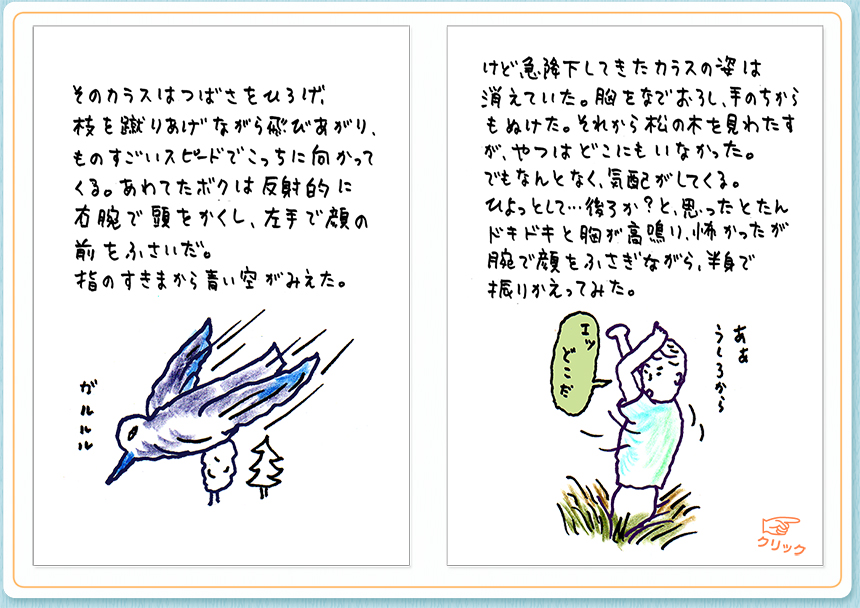 そのカラスはつばさをひろげ、
枝を蹴りあげながら飛びあがり、
ものすごいスピードでこっちに向かって
くる。あわてたボクは反射的に
右腕で頭をかくし、左手で顔の
前をふさいだ。
指のすきまから青い空がみえた。
ガルルル
けど急降下してきたカラスの姿は
消えていた。胸をなでおろし、手のちから
もぬけた。それから松の木を見わたす
が、やつはどこにもいなかった。
でもなんとなく、気配がしてくる。
ひょっとして…後ろか？と、思ったとたん
ドキドキと胸が高鳴り、怖かったが
腕で顔をふさぎながら、半身で
振りかえってみた。
ああ
うしろから
エッ
どこだ
クリック